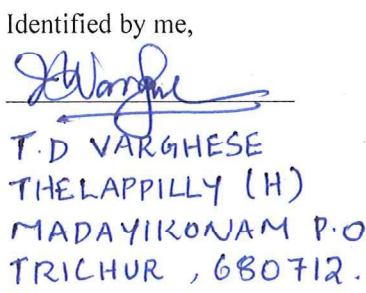 Identified by me,
T.D VARGHESE
THELAPPILLY (H)
MADAYIKONAM P.O
TRICHUR , 680712.